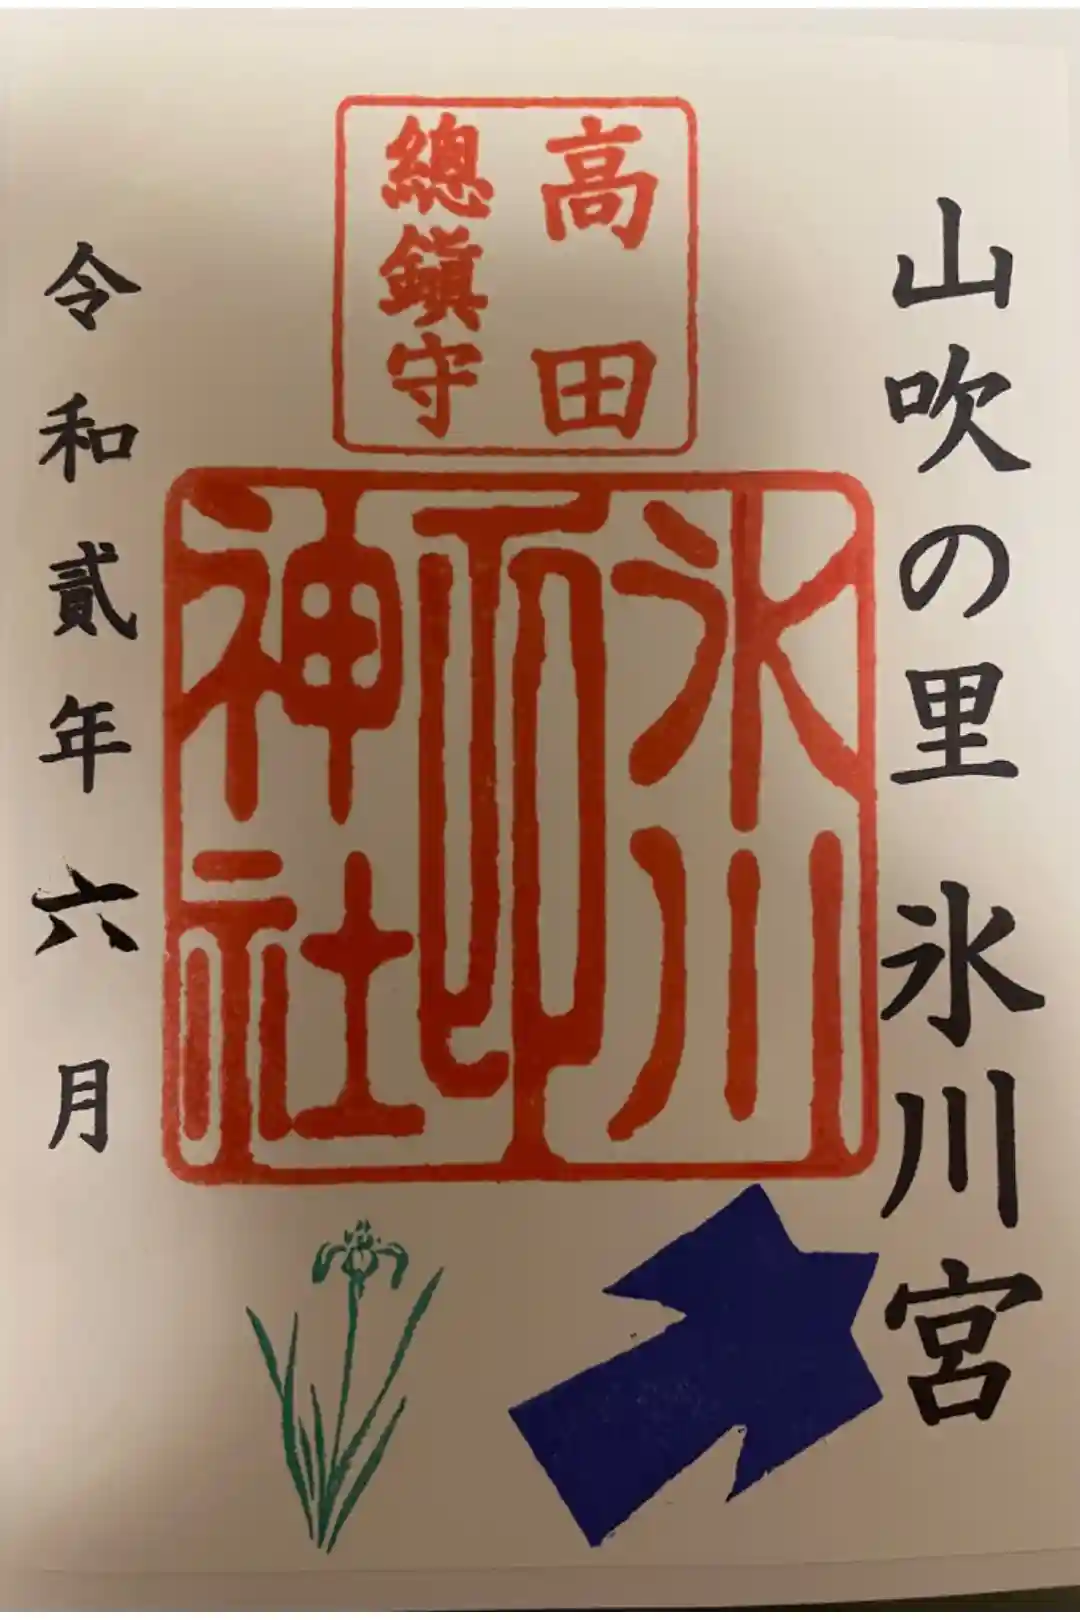 山吹の里 氷川宮
高田
總鎮守
氷川
神社
令和貳年六月